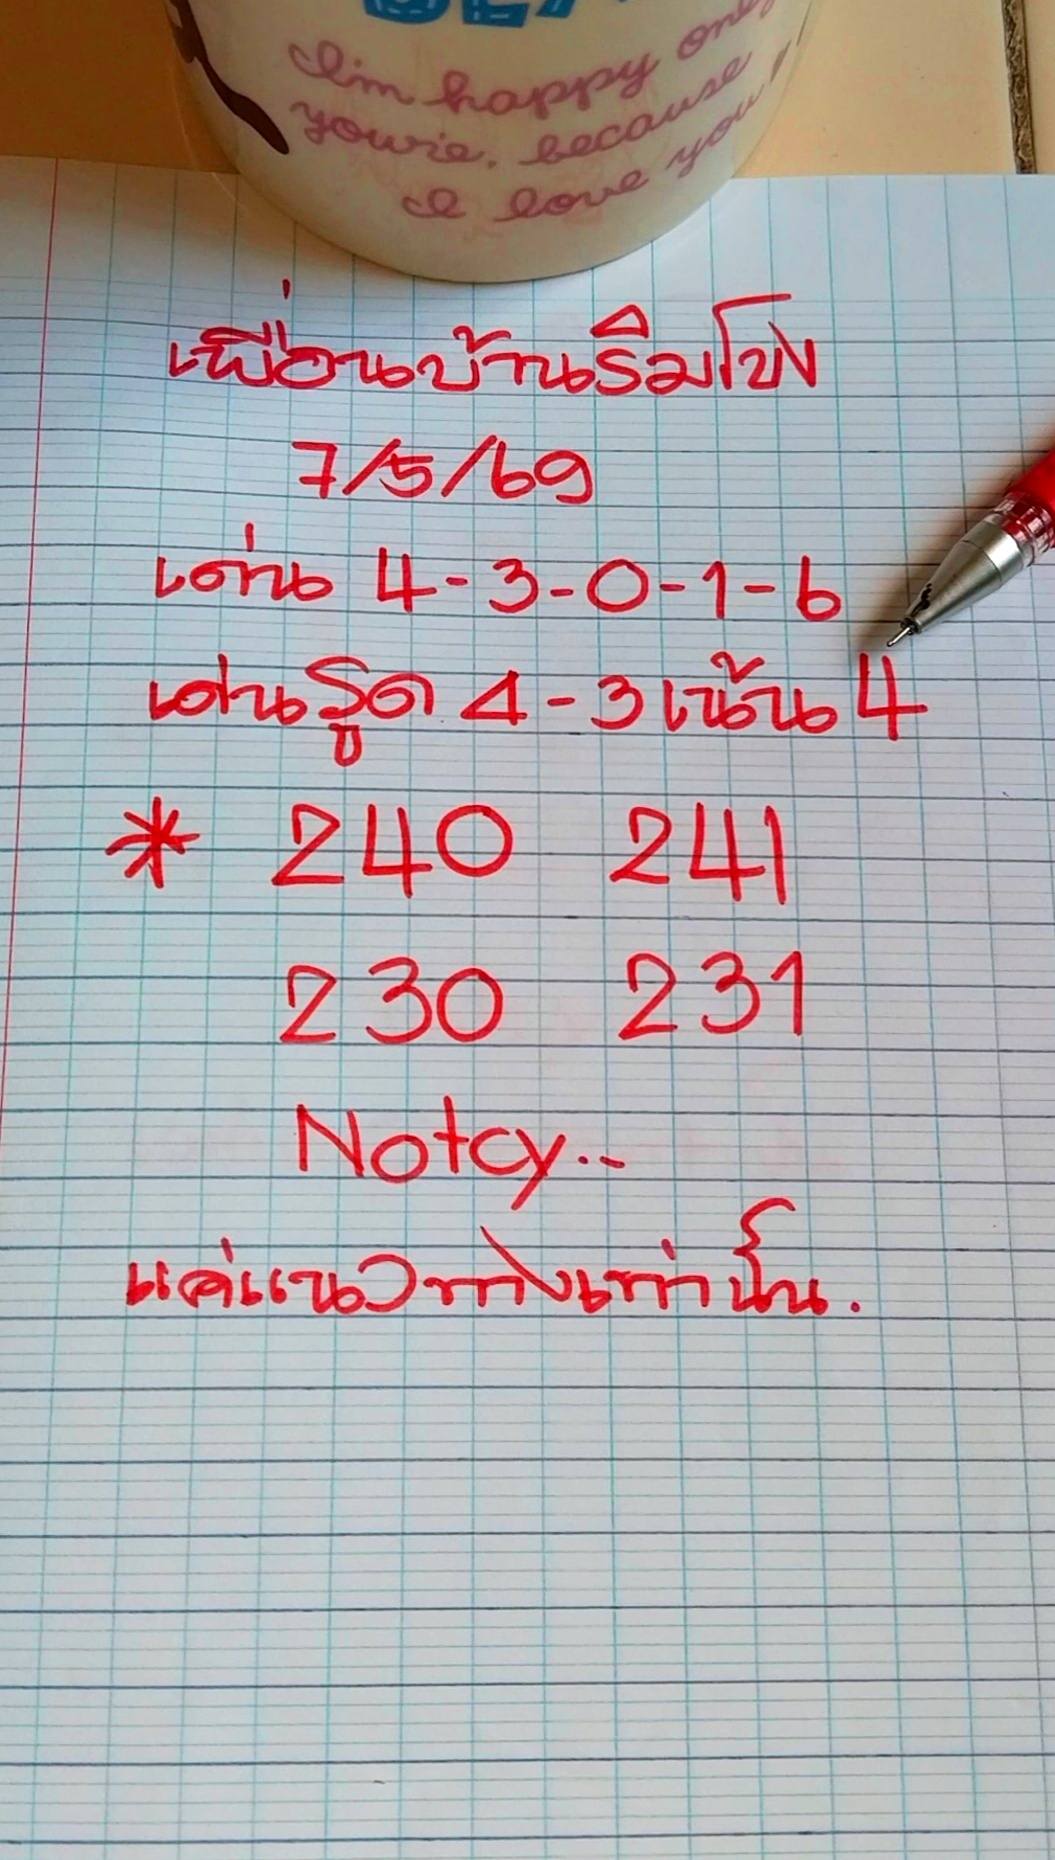 I'm happy only
you're. because
I love you "
เพื่อนบ้านริมโขง
7/5/69
เด่น 4-3-0-1-6
เด่นรูด 4-3 เน้น 4
* 240 241
230 231
Notcy..
แค่แนวทางเท่านั้น.